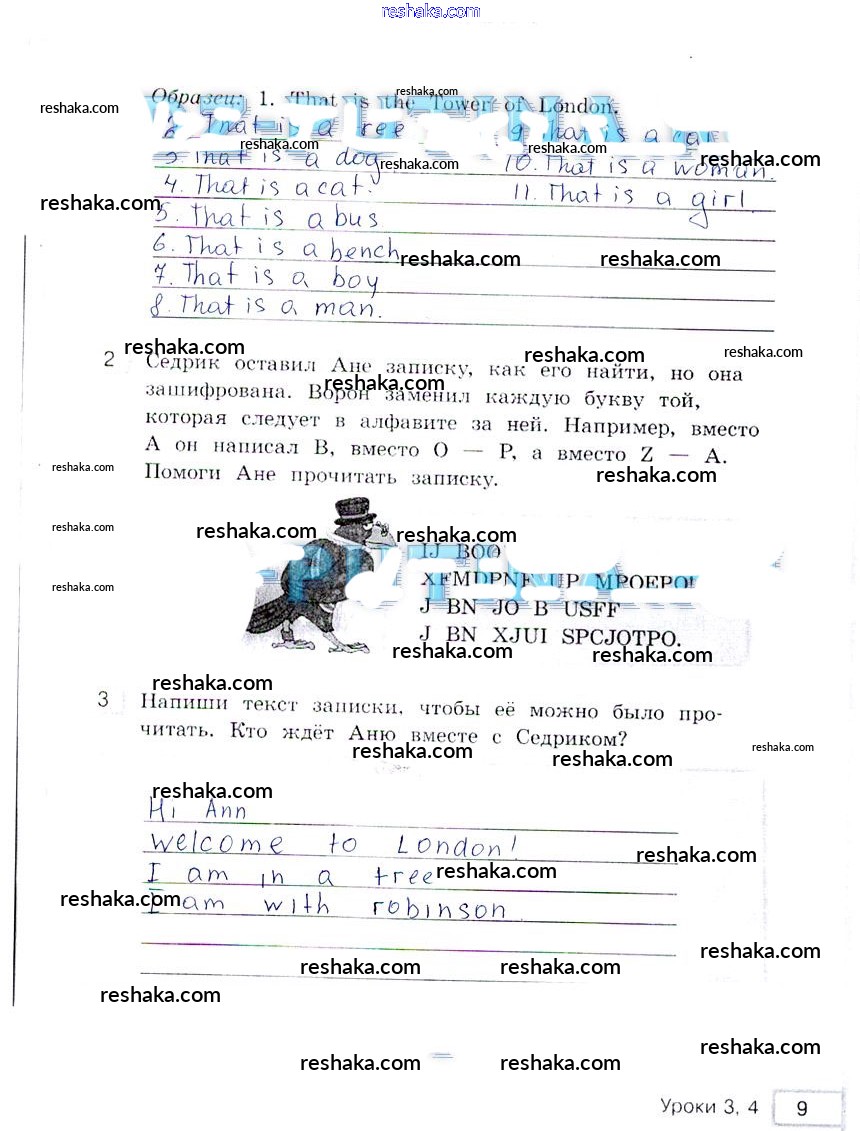 reshaka.com
reshaka.com
Образец: 1. That is the Tower of London.
reshaka.com
2. That is a tree
9. That is a car
reshaka.com
reshaka.com
3. That is a dog
10. That is a woman.
reshaka.com
reshaka.com
4. That is a cat.
11. That is a girl
reshaka.com
5. That is a bus
6. That is a bench
reshaka.com
reshaka.com
7. That is a boy
8. That is a man.
reshaka.com
reshaka.com
reshaka.com
2 Седрик оставил Ане записку, как его найти, но она
reshaka.com
зашифрована. Ворон заменил каждую букву той,
которая следует в алфавите за ней. Например, вместо
А он написал В, вместо О — Р, а вместо Z — А.
reshaka.com
reshaka.com
Помоги Ане прочитать записку.
reshaka.com
reshaka.com
reshaka.com
IJ BOO
XFMDPNF UP MPOEPO!
reshaka.com
J BN JO B USFF
J BN XJUI SPCJOTPO.
reshaka.com
reshaka.com
reshaka.com
3 Напиши текст записки, чтобы её можно было про-
читать. Кто ждёт Аню вместе с Седриком?
reshaka.com
reshaka.com
reshaka.com
reshaka.com
Hi Ann
welcome to London!
reshaka.com
I am in a tree
reshaka.com
reshaka.com
I am with robinson
reshaka.com
reshaka.com
reshaka.com
reshaka.com
reshaka.com
reshaka.com
reshaka.com
Уроки 3, 4 9